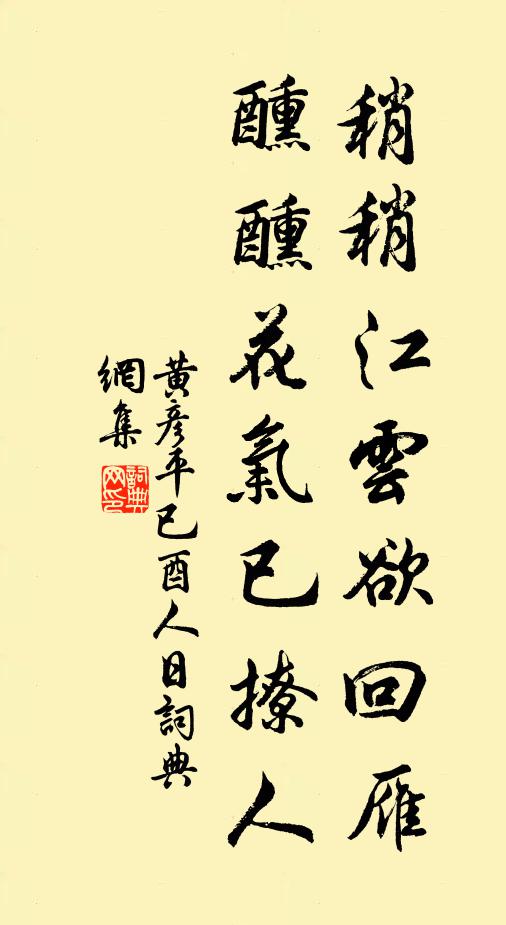 稍稍江雲欲回雁
醺醺花氣已撩人
黃彥平已酉人日詞典
網集
詞典
網印